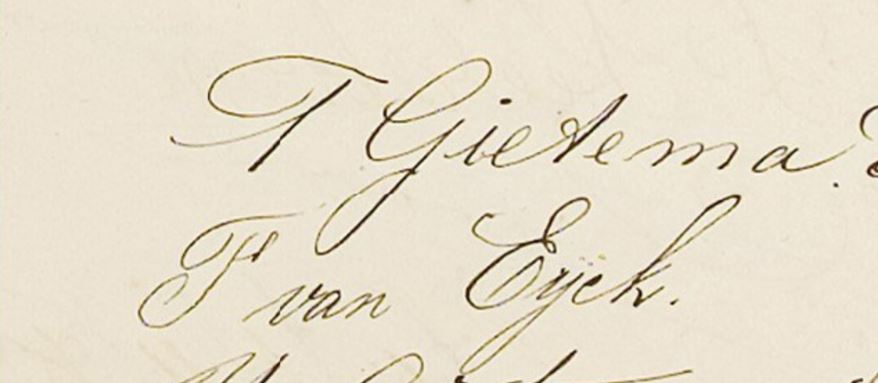 T Gietema.
F van Eÿck.